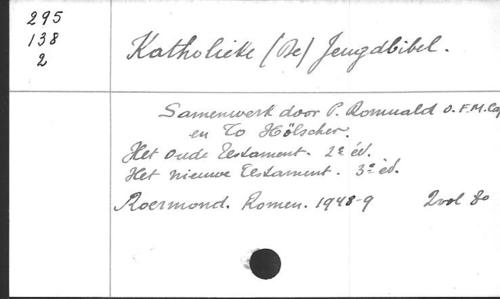 295
138
2
Katholieke (De) Jeugdbibel.
Samenwerk door P. Romuald O.F.M. Cap
en To Hölscher.
Het Oude Testament. 2e éd.
Het nieuwe Testament. 3e éd.
Roermond. Romen. 1948-9 2 vol 8o